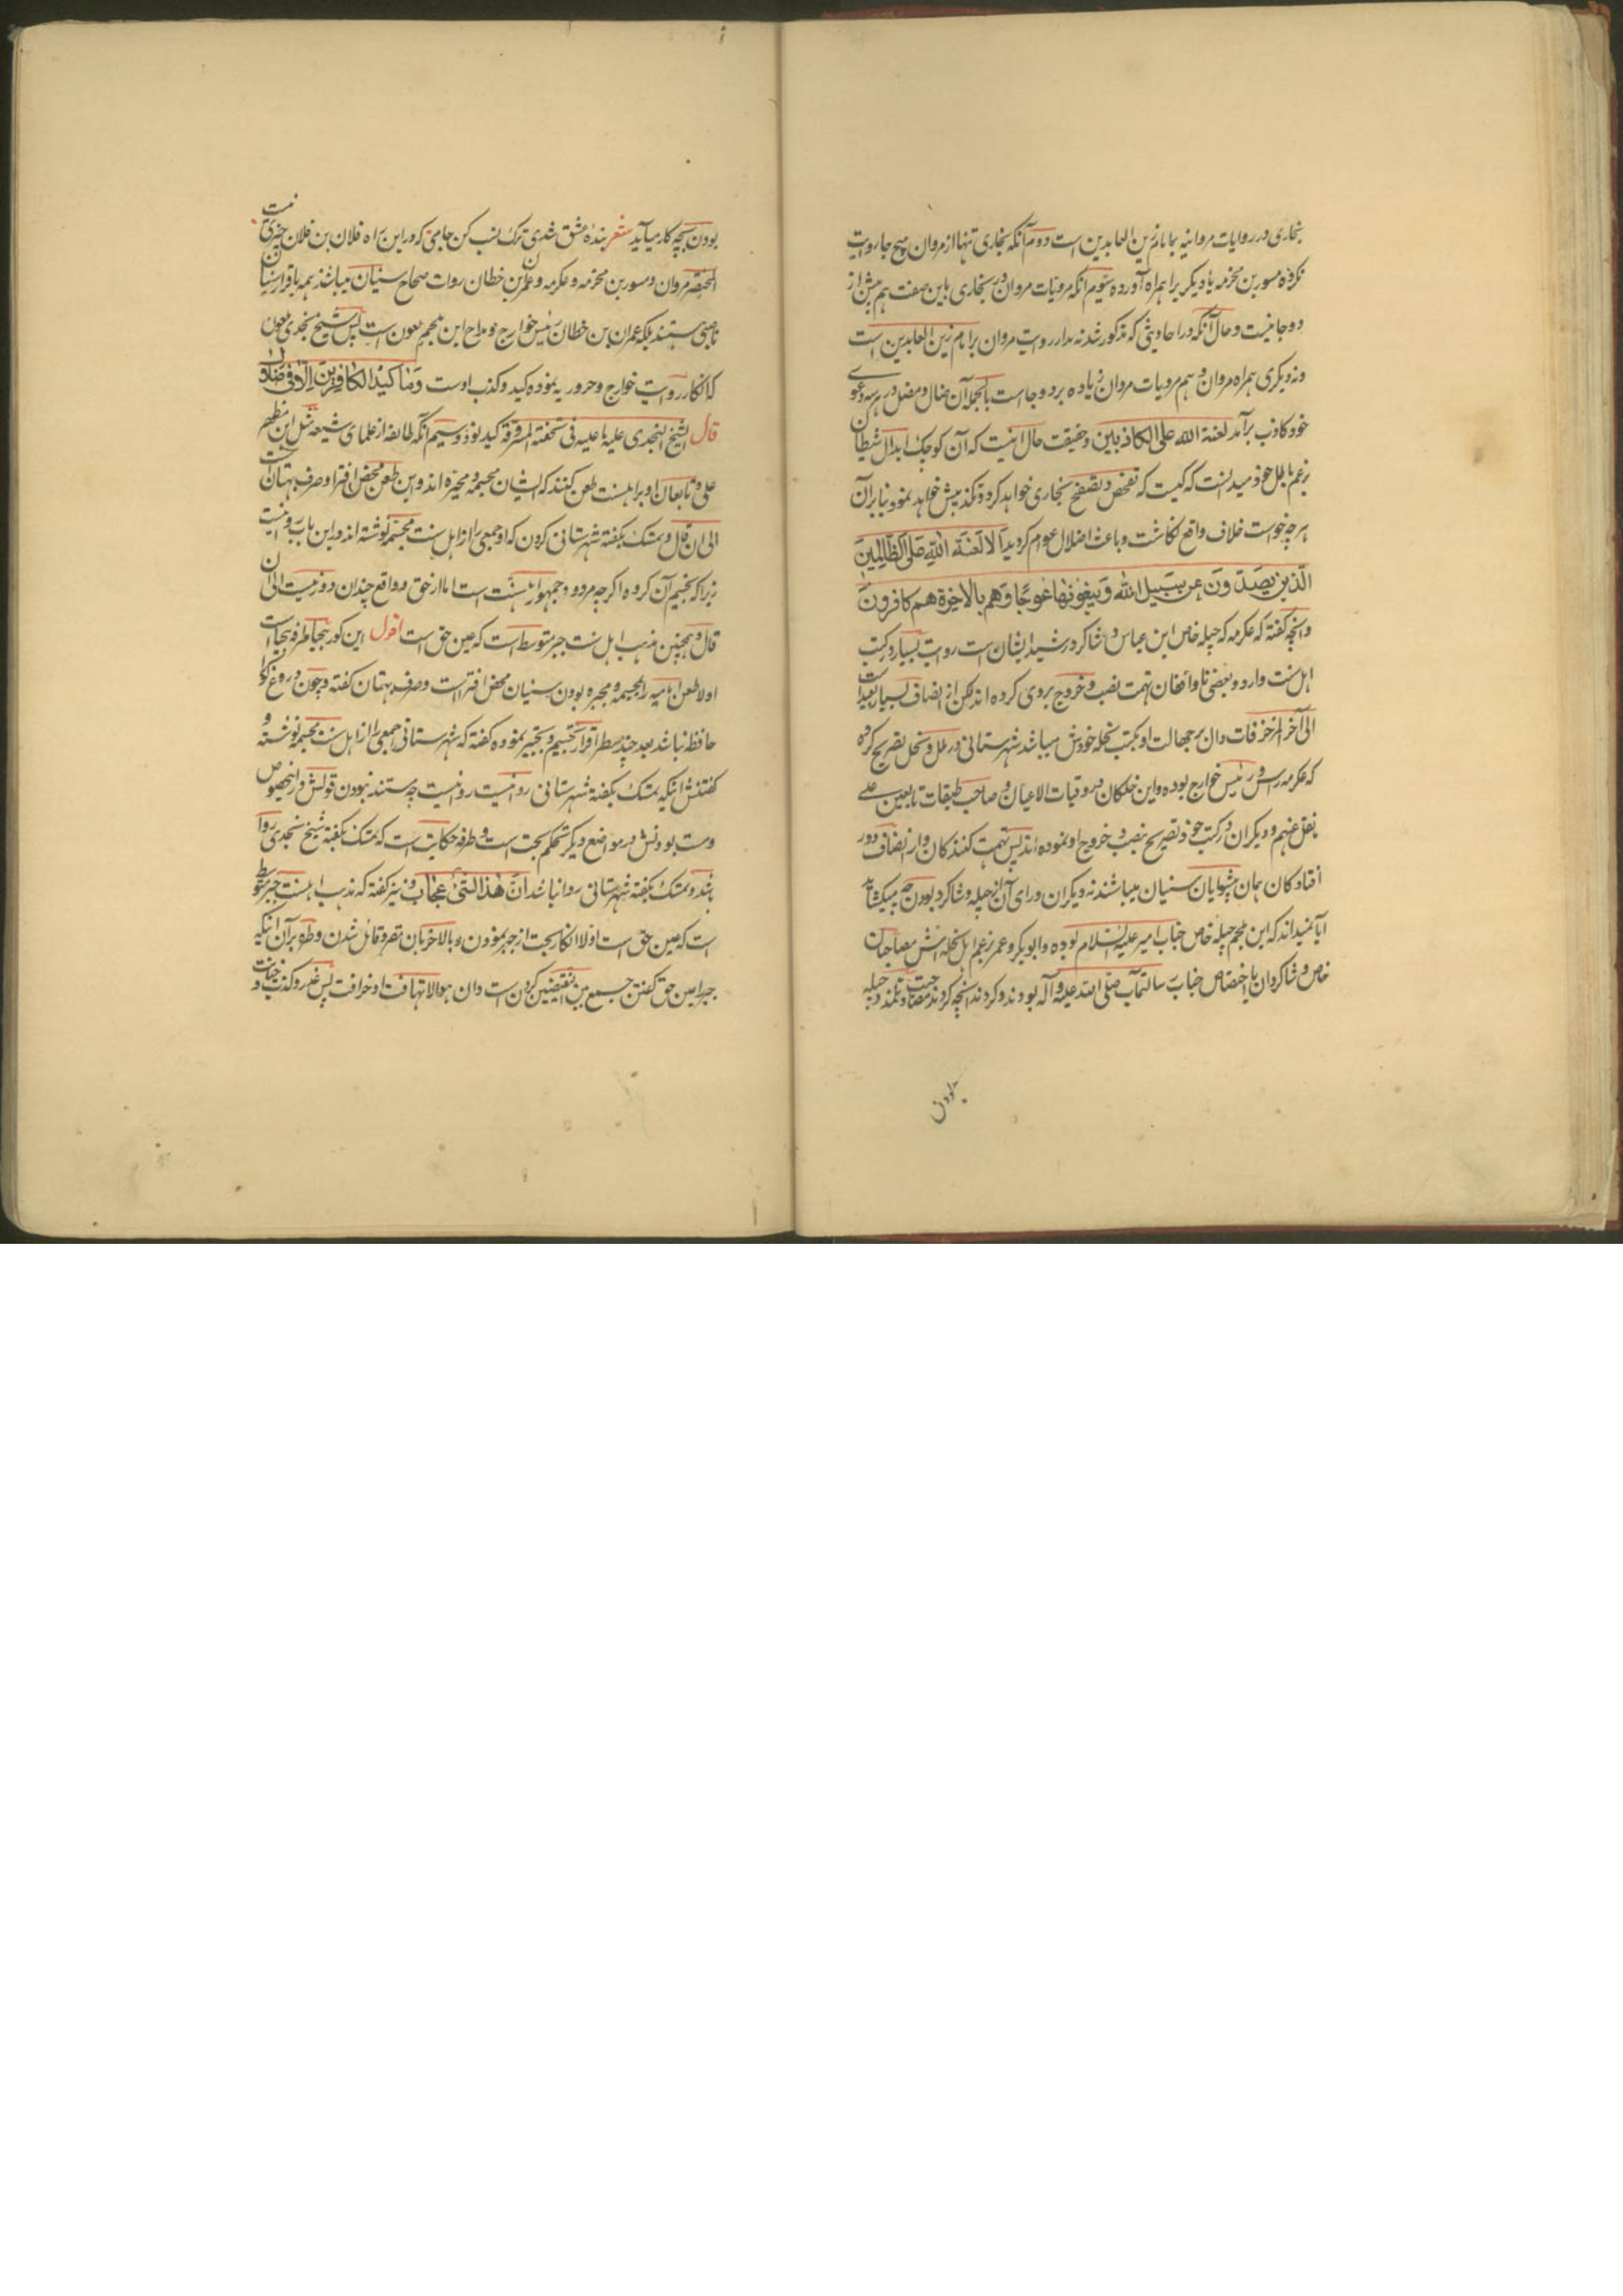 بخاری در روایات مروانیه بامام زین العابدین است دوم آنکه بخاری تنها از مروان هیچ جا روایت
نکرده مسور بن مخرمه یا دیگری را همراه آورده سیوم آنکه مرویات مروان در بخاری باین صفت هم بیش از
دو جا نیست و حال آنکه در احادیثی که مذکور شد نه مدار روایت مروان بر امام زین العابدین است
و نه دیگری همراه مروان و هم مرویات مروان زیاده بر دو جا است بالجمله آن ضال و مضل در هر سه دعوی
خود کاذب برآمد لعنة الله علی الکاذبین و حقیقت حال اینست که آن کوچک ابدال شیطان
بزعم باطل خود میدانست که کیست که تفحص و تصفح بخاری خواهد کرد و تکذیبش خواهد نمود بنابرآن
هرچه خواست خلاف واقع نکاشت و باعث اضلال عوام کردید الا لعنة الله علی الظالمین
الذین یصدون عن سبیل الله ویبغونها عوجا وهم بالاخرة هم کافرون
و آنچه کفته که عکرمه که چیله خاص ابن عباس و شاکرد رشید ایشان است روایت بسیار در کتب
اهل سنت وارد و بعضی ناواقفان تهمت نصب و خروج بر وی کرده اند لکن از انصاف بسیار بعید است
الی آخر از خرفات دان بر جهالت او بکتب نحله خودش میباشد شهرستانی در ملل و نحل تصریح کرده
که عکرمه راس و رئیس خوارج بوده و ابن خلکان در وفیات الاعیان و صاحب طبقات تابعین علی
نقل عنهم و دیکران در کتب خود تصریح نصب و خروج او نموده اند پس تهمت کنندکان و از انصاف دور
افتادکان همان پیشوایان سنیان میباشند نه دیکران و رای آن از چیله و شاکرد بودن چه میکشاید
آیا نمیداند که ابن ملجم چیله خاص جناب امیر علیه السلام بوده و ابوبکر و عمر بزعم اهل نحله اش مصاحبان
خاص و شاکردان با اختصاص جناب رسالتمآب صلی الله علیه و آله بودند و کردند آنچه کردند مصاحبت و تلمذ و چیله
بودن
بودن بچه کار میآید شعر بنده عشق شدی ترک نسب کن جامی که در این راه فلان بن فلان چیزی نیست
المختصر مروان و مسور بن مخرمه و عکرمه و عمران بن خطان روات صحاح سنیان میباشند همه باقرار سنیان
ناصبی هستند بلکه عمران بن خطان رئیس خوارج و مداح ابن ملجم ملعون است پس شیخ نجدی ملعون
که انکار روایت خوارج و حروریه نموده کید و کذب اوست وما کید الکافرین الا فی ضلال
قال الشیخ النجدی علیه ما علیه فی تحفته المسروقة کید نود و سیم آنکه طائفه از علمای شیعه مثل ابن مطهر
حلی و تابعان او بر اهلسنت طعن کنند که ایشان مجسمه و مجبره اند و این طعن محض افترا و صرف بهتان است
الی ان قال و تمسک بکفته شهرستانی کردن که او جمعی را از اهل سنت مجسمه نوشته اند در این باب روا نیست
زیرا که تجسیم آن کروه اکرچه مردود جمهور اهلسنت است اما از حق و واقع چندان دور نیست الی ان
قال و همچنین مذهب اهل سنت جبر متوسط است که عین حق است اقول این کور بیحیا طرفه بیحیا است
اولا طعن امامیه را بمجسمه و مجبره بودن سنیان محض افتراست و صرف بهتان کفته و چون دروغ کو را
حافظه نباشد بعد چند سطر اقرار تجسیم و تجبیر نموده کفته که شهرستانی جمعی را از اهل سنت مجسمه نوشته و
کفتنش اینکه تمسک بکفته شهرستانی روا نیست روا نیست چه مستند نبودن قولش در اینخصوص
و مستند بودنش در مواضع دیکر تحکم بحت است و طرفه حکایت است که تمسک بکفته شیخ نجدی روا
باشد و تمسک بکفته شهرستانی روا نباشد ان هذا لشیء عجاب و نیز کفته که مذهب اهلسنت جبر متوسط
است که عین حق است اولا انکار بحت از جبر نمودن و بالاخر بآن مقر و قائل شدن و طره بر آن اینکه
جبر را عین حق کفتن جمع بین النقیضین کردن است و ان هو الا تهافت او خرافت پس غدر و کذب و خیانت و